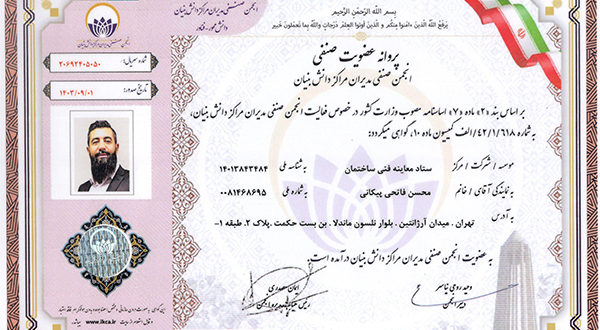 بسم الله الرحمن الرحیم
یرفع الله الذین ءامنوا منکم و الذین أوتوا العلم درجات والله بما تعملون خبیر
انجمن صنفی مدیران مراکز دانش بنیان
دانش محور - فناور
انجمن صنفی مدیران مراکز دانش بنیان
شماره سریال: ۲۰۶۹۲۴۰۵۰۵۰
تاریخ صدور: ۱۴۰۳/۰۹/۰۱
پروانه عضویت صنفی
انجمن صنفی مدیران مراکز دانش بنیان
بر اساس بند «۲» ماده «۷» اساسنامه مصوب وزارت کشور در خصوص فعالیت انجمن صنفی مدیران مراکز دانش بنیان،
به شماره ۴۲/۱/۶۱۸/الف کمیسیون ماده ۱۰، گواهی میگردد:
موسسه / شرکت / مرکز ستاد معاینه فنی ساختمان به شناسه ملی ۱۴۰۱۳۸۴۳۴۸۴
به نمایندگی آقای / خانم محسن فاتحی پیکانی به شماره ملی ۰۰۸۱۴۶۸۶۹۵
به آدرس تهران . میدان آرژانتین . بلوار نلسون ماندلا . بن بست حکمت . پلاک ۲. طبقه ۱-
به عضویت انجمن صنفی مدیران مراکز دانش بنیان درآمده است.
دبیر انجمن
www.ikca.ir